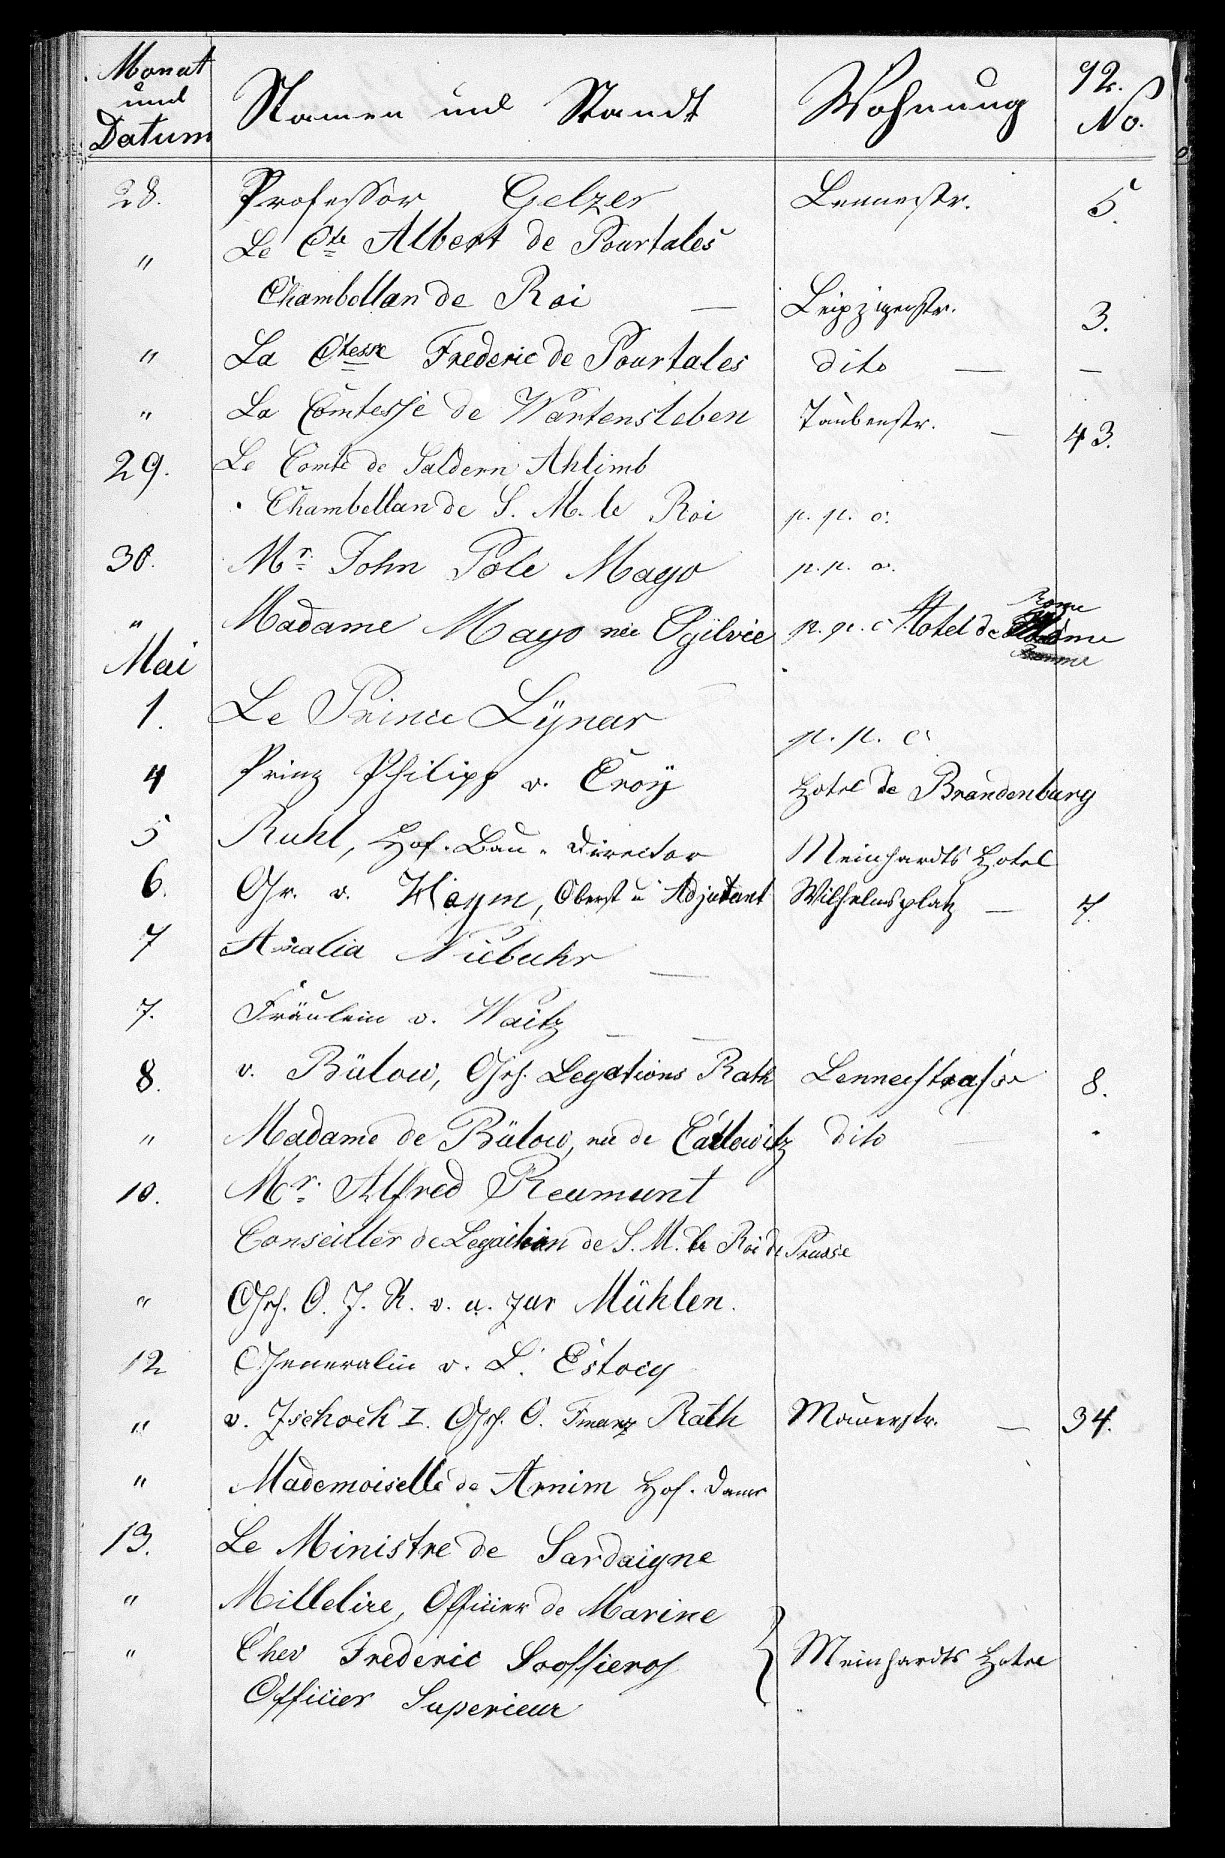 Monat und Datum Namen und Standt Wohnung 92. No.
28. Professor Gelzer Lennestr. 5.
" Le Cte Albert de Pourtales
Chambellan de Roi — Leipzigerstr. 3.
" La Ctesse Frederic de Pourtales dito — —
" La Comtesse de Wartensleben Taubenstr. — 43.
29. Le Comte de Saldern Ahlimb
Chambellan de S. M. le Roi p. p. c.
30. Mr. John Pole Mayo p. p. c.
" Madame Mayo née Ogilvie p. p. c Hotel de Rome
Mai
1. Le Prince Lÿnar p. p. c
4 Prinz Philipp v. Croÿ Hotel de Brandenburg
5 Ruhl, Hof-Bau-Director Meinhardts Hotel
6. Gr. v. Heym, Oberst u Adjutant Wilhelmsplatz — 7.
7 Amalia Niebuhr —
7. Fräulein v. Waitz — —
8. v. Bülow, Geh. Legations Rath Lennestraße 8.
" Madame de Bülow, née de Carlowitz dito
10. Mr. Alfred Reumunt
Conseiller de Legation de S. M. le Roi de Prusse
" Geh. O. J. R. v. u. zur Mühlen.
12 Generalin v. L'Estocq
" v. Zschock I. Geh. O. Finanz Rath Mauerstr. — 34.
" Mademoiselle de Arnim Hof-Dame
13. Le Ministre de Sardaigne
" Millelire, Officier de Marine
" Chev Frederic Meinhardts Hotel
Officier Superieur